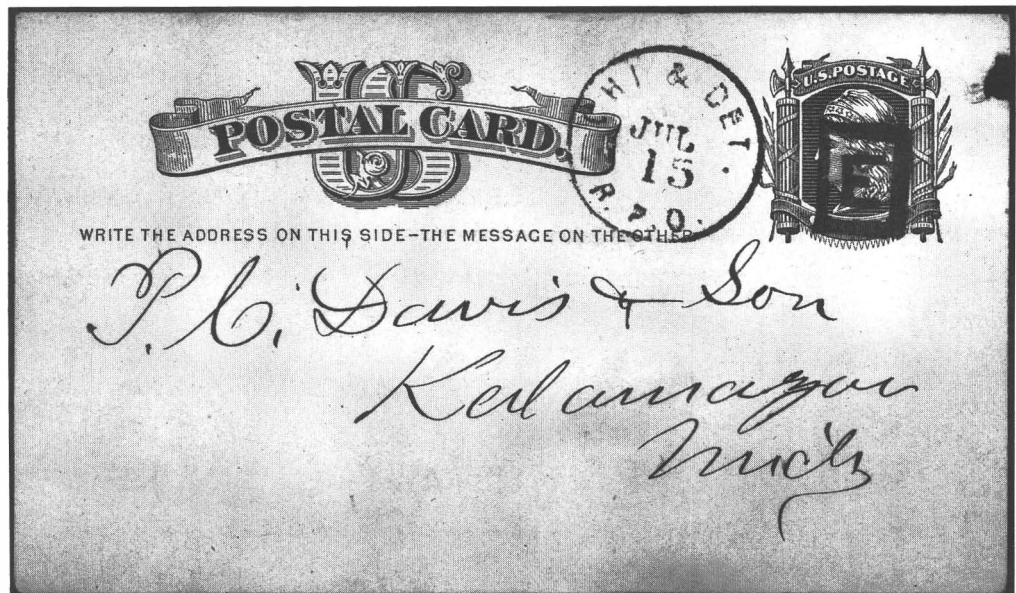 US
POSTAL CARD.
CHI & DET.
JUL
15
R.P.O.
U.S. POSTAGE
E
WRITE THE ADDRESS ON THIS SIDE–THE MESSAGE ON THE OTHER
P. C. Davis & Son
Kalamazoo
Mich